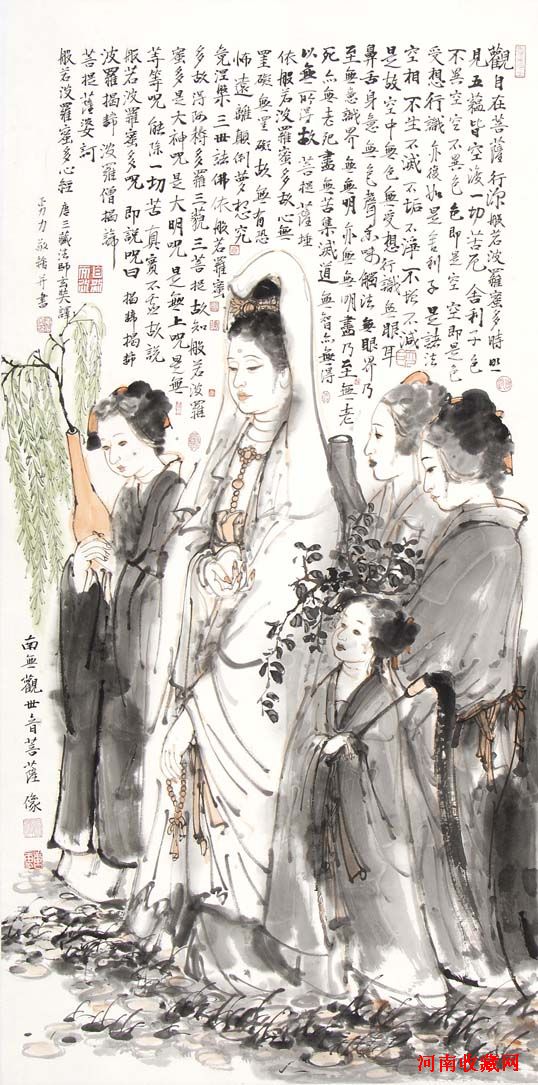 觀自在菩薩行深般若波羅蜜多時照
見五蘊皆空度一切苦厄舍利子色
不異空空不異色色即是空空即是色
受想行識亦復如是舍利子是諸法
空相不生不滅不垢不淨不增不減
是故空中無色無受想行識無眼耳
鼻舌身意無色聲香味觸法無眼界乃
至無意識界無無明亦無無明盡乃至無老
死亦無老死盡無苦集滅道無智亦無得
以無所得故菩提薩埵
依般若波羅蜜多故心無
罣礙無罣礙故無有恐
怖遠離顛倒夢想究
竟涅槃三世諸佛依般若羅蜜
多故得阿耨多羅三藐三菩提故知般若波羅
蜜多是大神咒是大明咒是無上咒是無
等等咒能除一切苦真實不虛故說
般若波羅蜜多咒即說咒曰揭諦揭諦
波羅揭諦波羅僧揭諦
菩提薩婆訶
般若波羅蜜多心經 唐三藏法師玄奘譯
勇力敬繪并書
南無觀世音菩薩像
河南收藏网